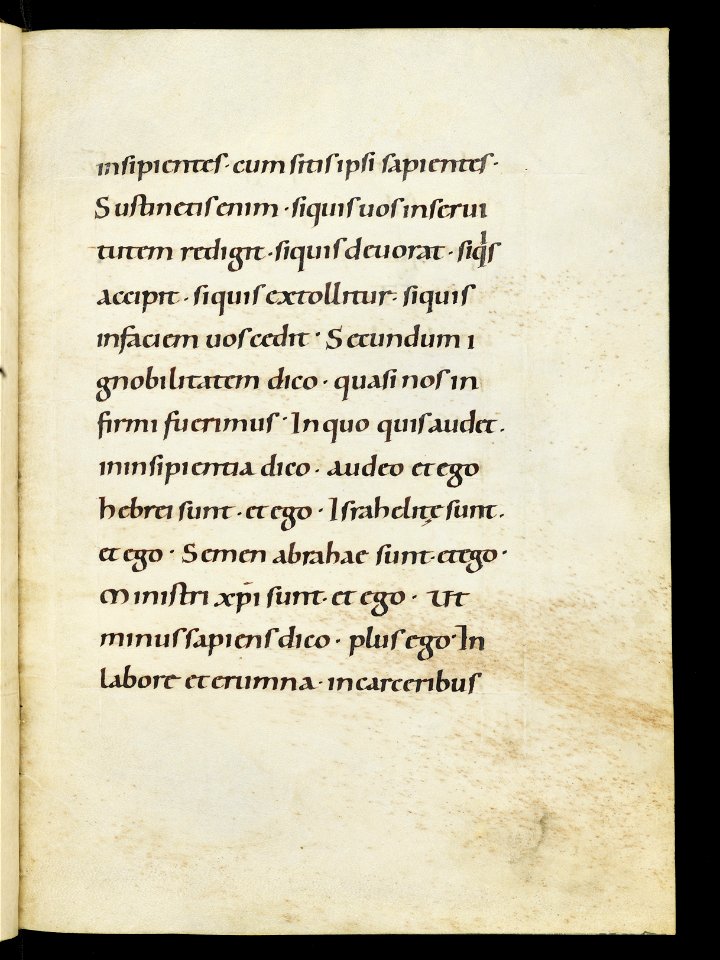 insipientes · cum sitis ipsi sapientes ·
Sustinetis enim · siquis uos inserui
tutem redigit · siquis deuorat · siqs
accipit · siquis extollitur · siquis
infaciem uos cedit · Secundum i
gnobilitatem dico · quasi nos in
firmi fuerimus · In quo quis audet ·
ininsipientia dico · audeo et ego
hebrei sunt · et ego · Israhelitę sunt ·
et ego · Semen abrahae sunt · et ego ·
Ministri xp̄i sunt · et ego · Ut
minus sapiens dico · plus ego · In
labore et erumna · incarceribus